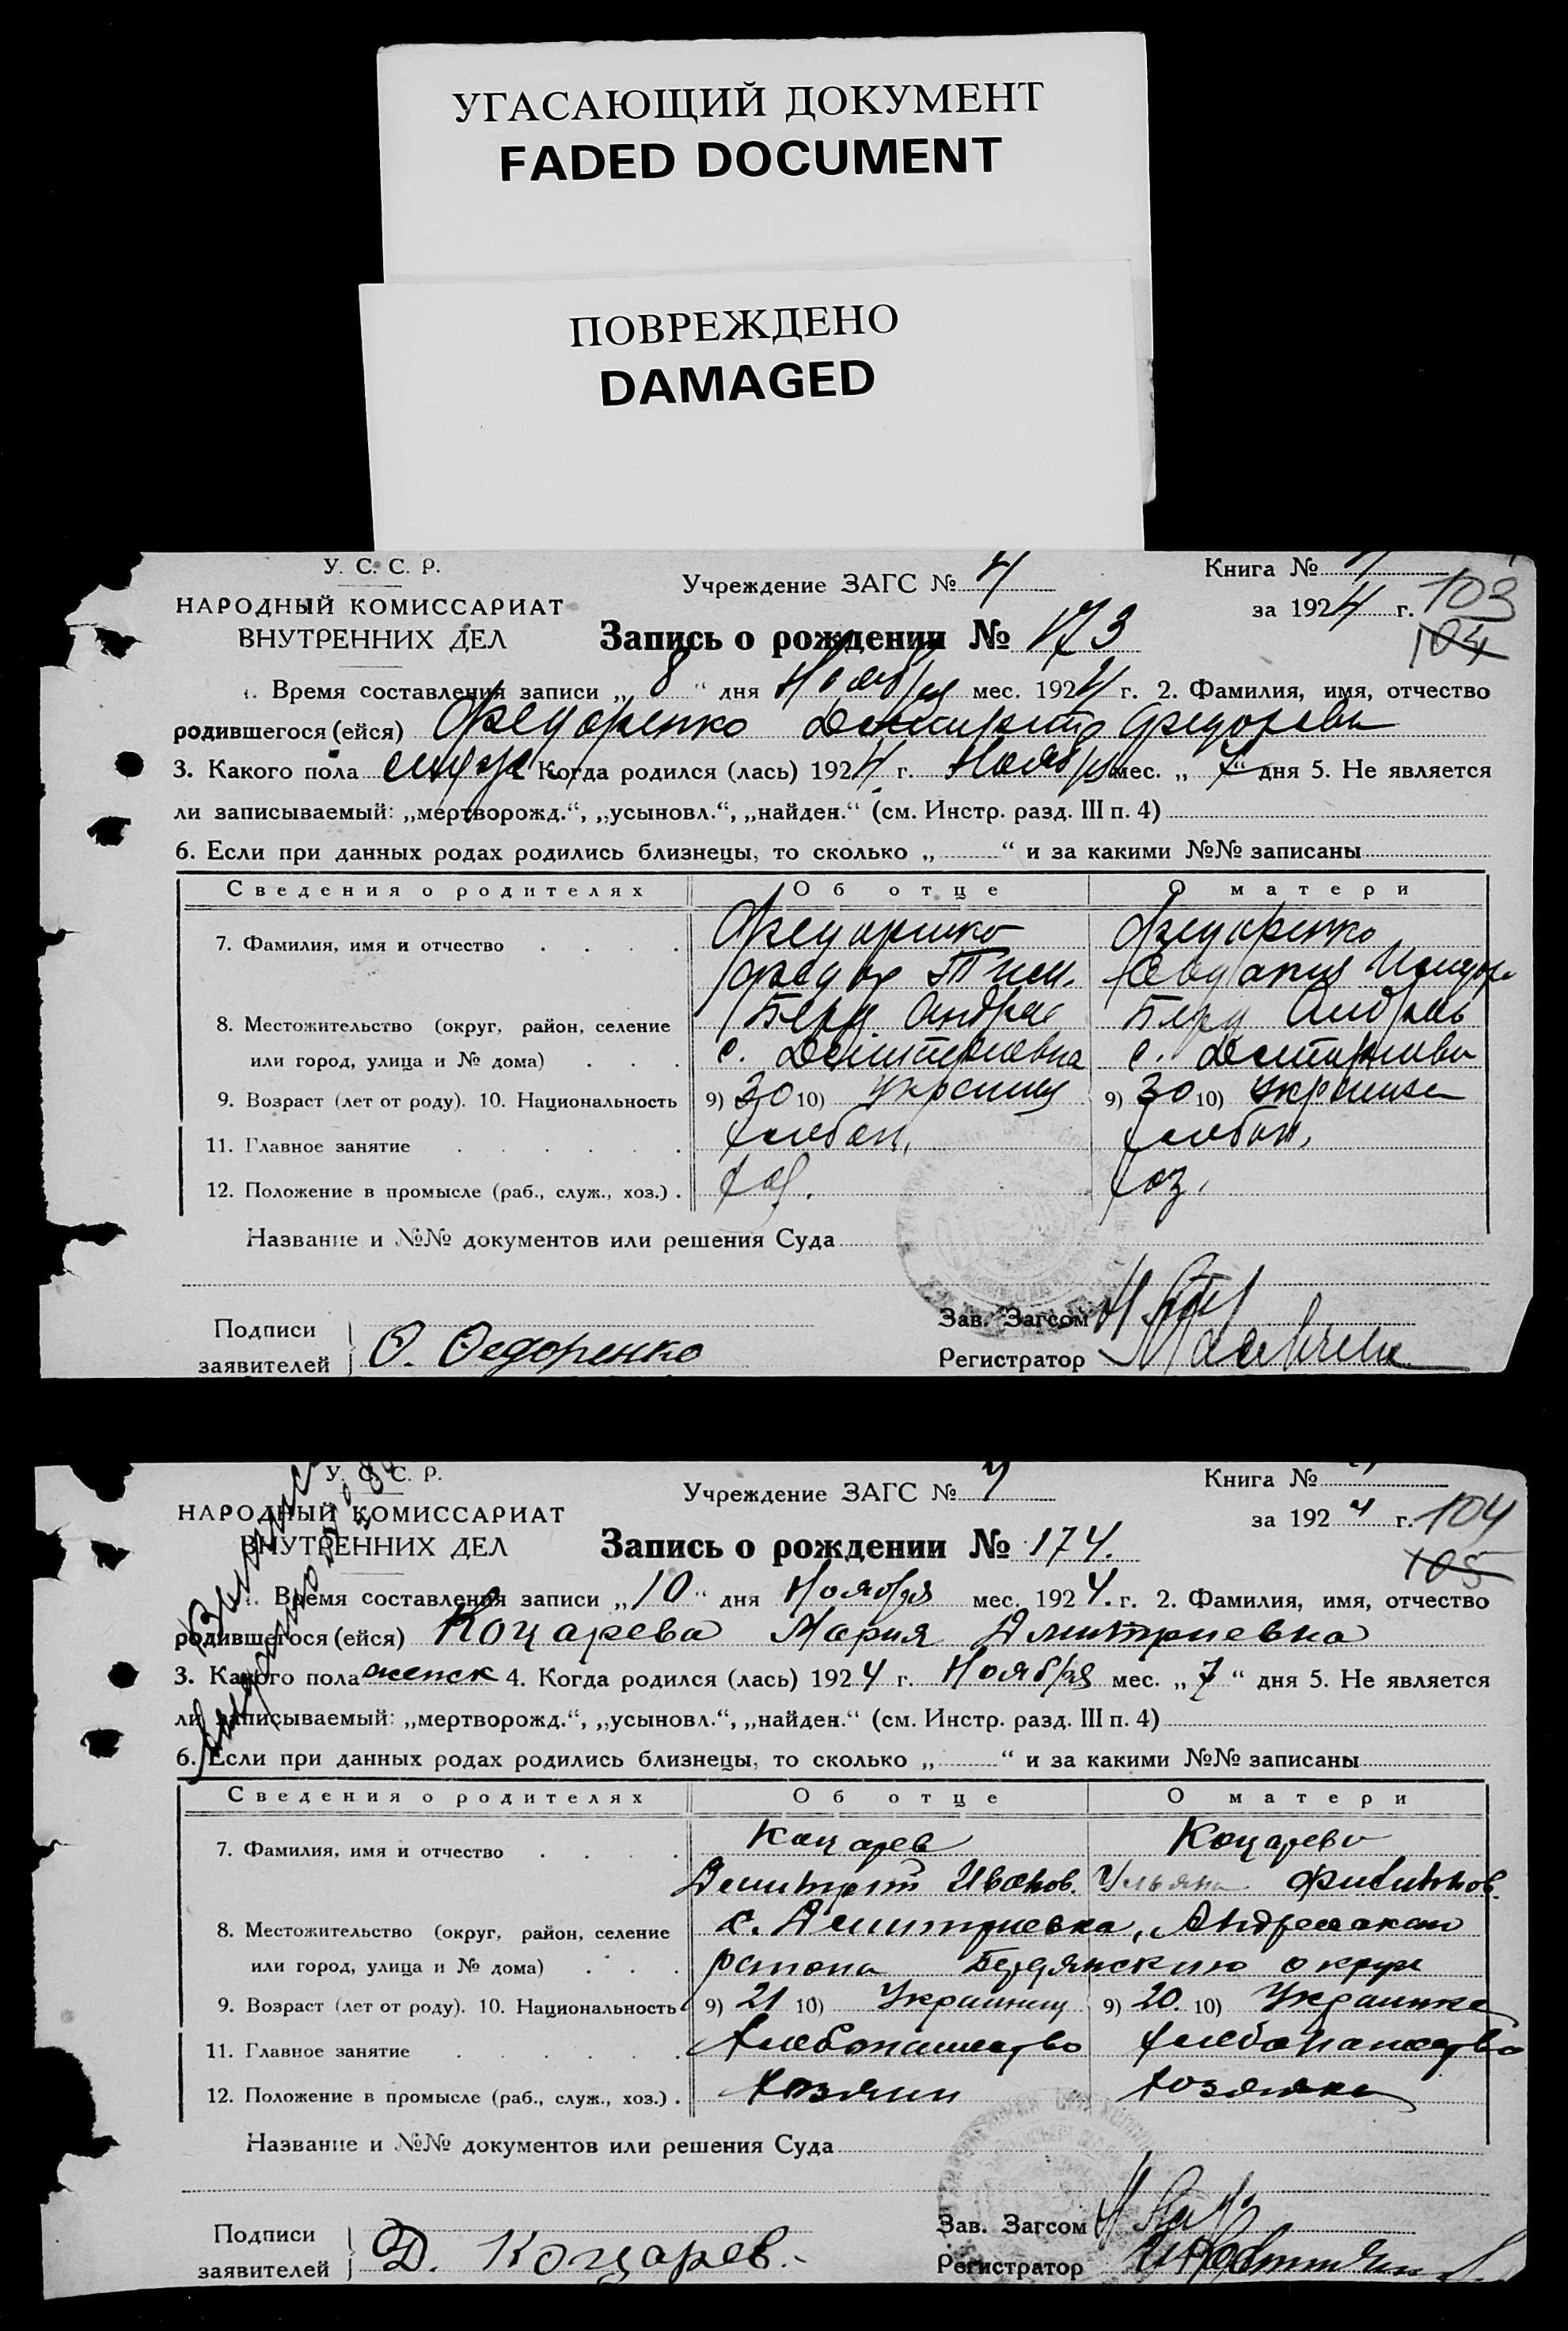 УГАСАЮЩИЙ ДОКУМЕНТ
FADED DOCUMENT
ПОВРЕЖДЕНО
DAMAGED
У. С. С. Р.
НАРОДНЫЙ КОМИССАРИАТ
ВНУТРЕННИХ ДЕЛ
Учреждение ЗАГС № 4
Книга №
за 1924 г. 103
104
Запись о рождении № 173
1. Время составления записи „8“ дня Ноября мес. 1924 г. 2. Фамилия, имя, отчество
родившегося (ейся) Федоренко Дмитрий Федорович
3. Какого пола Когда родился (лась) 1924 г. Ноября мес. „7“ дня 5. Не является
ли записываемый: „мертворожд.“, „усыновл.“, „найден.“ (см. Инстр. разд. III п. 4)
6. Если при данных родах родились близнецы, то сколько „ “ и за какими №№ записаны
Сведения о родителях Об отце О матери
7. Фамилия, имя и отчество Федоренко Федоренко
Федор Тим. Евдокия Исидор.
8. Местожительство (округ, район, селение Берд. Андреев Берд Андреев
или город, улица и № дома) с. Дмитриевка с. Дмитриевка
9. Возраст (лет от роду). 10. Национальность 9) 30 10) Украинец 9) 30 10) Украинка
11. Главное занятие хлебоп. хлебоп.
12. Положение в промысле (раб., служ., хоз.) хоз. хоз.
Название и №№ документов или решения Суда
Подписи
заявителей Ф. Федоренко
Зав. Загсом
Регистратор
У. С. С. Р.
НАРОДНЫЙ КОМИССАРИАТ
ВНУТРЕННИХ ДЕЛ
Учреждение ЗАГС № 4
Книга №
за 1924 г. 104
105
Запись о рождении № 174.
1. Время составления записи „10“ дня Ноября мес. 1924. г. 2. Фамилия, имя, отчество
родившегося (ейся) Коцарева Мария Дмитриевна
3. Какого пола женск 4. Когда родился (лась) 1924 г. Ноября мес. „7“ дня 5. Не является
ли записываемый: „мертворожд.“, „усыновл.“, „найден.“ (см. Инстр. разд. III п. 4)
6. Если при данных родах родились близнецы, то сколько „ “ и за какими №№ записаны
Сведения о родителях Об отце О матери
7. Фамилия, имя и отчество Коцарев Коцарева
Дмитрий Иванов. Ульяна Филиппов.
8. Местожительство (округ, район, селение с. Дмитриевка, Андреевского
или город, улица и № дома) района Бердянского округа
9. Возраст (лет от роду). 10. Национальность 9) 21 10) Украинец 9) 20. 10) Украинка
11. Главное занятие Хлебопашество хлебопашество
12. Положение в промысле (раб., служ., хоз.) Хозяин хозяйка
Название и №№ документов или решения Суда
Подписи
заявителей Д. Коцарев.
Зав. Загсом
Регистратор